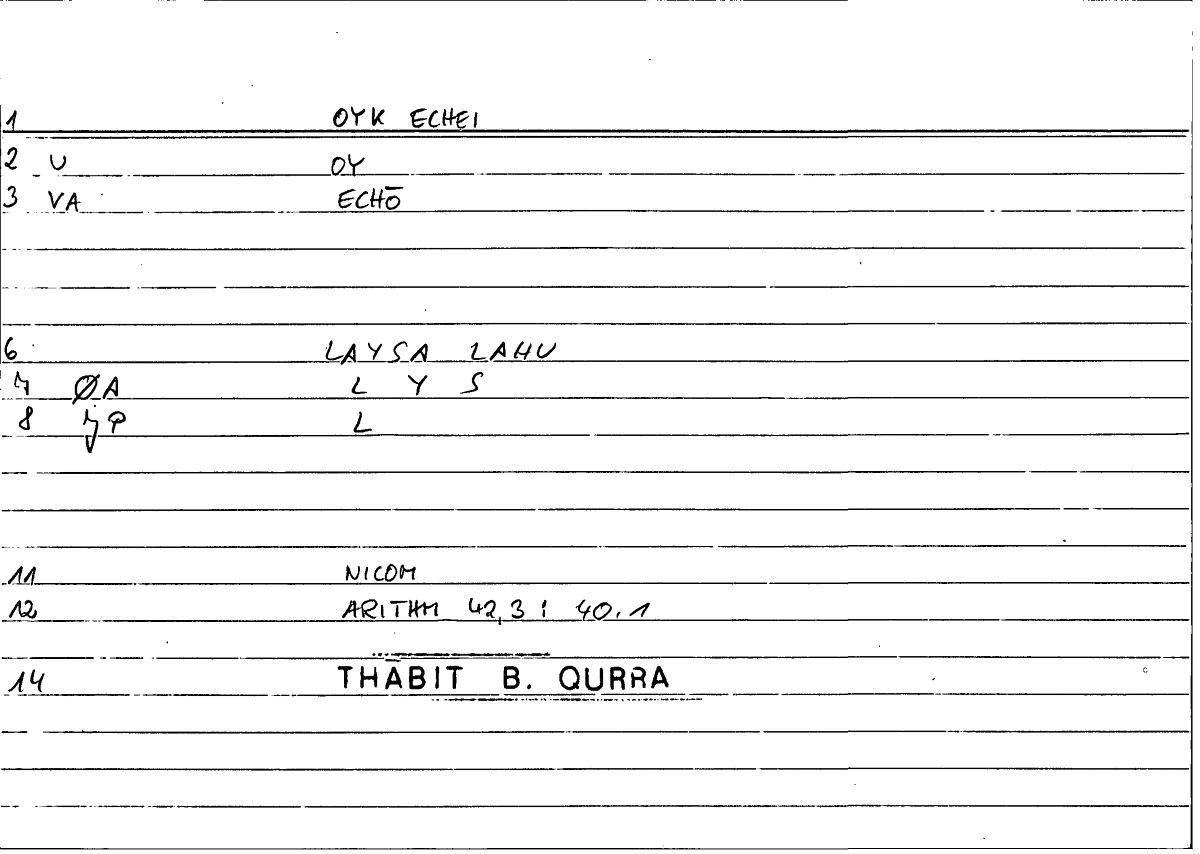 1 OYK ECHEI
2 U OY
3 VA ECHŌ
6 LAYSA LAHU
7 ØA L Y S
8 P L
11 NICOM
12 ARITHM 42,3 : 40.1
14 THĀBIT B. QURRA